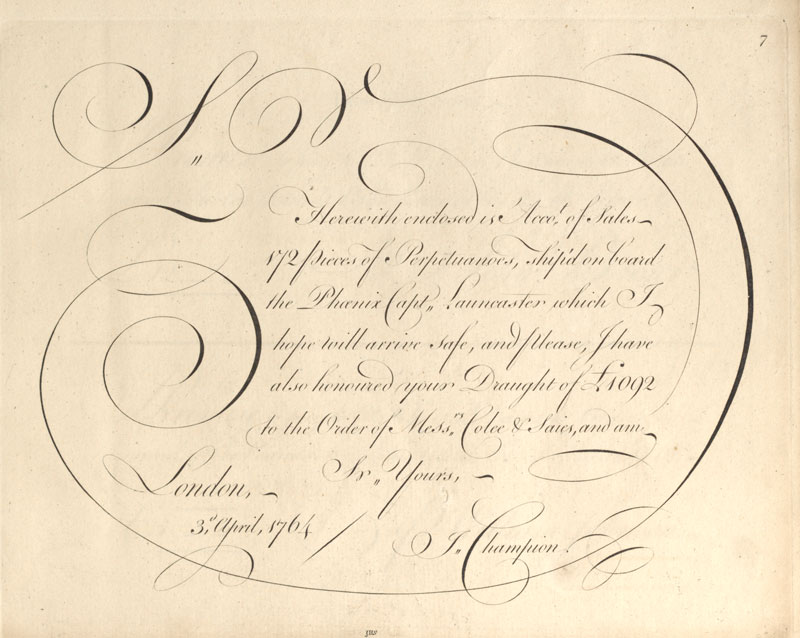 7
Sr
Herewith enclosed is Acco.t of Sales
172 pieces of Perpetuanoes, ship'd on board
the Phœnix Capt,, Launcaster which I
hope will arrive safe, and please, I have
also honoured your Draught of £1092
to the Order of Mess.rs Colee & Saies, and am
Sr,, Yours,
London,
3.d April, 1764
J,, Champion.